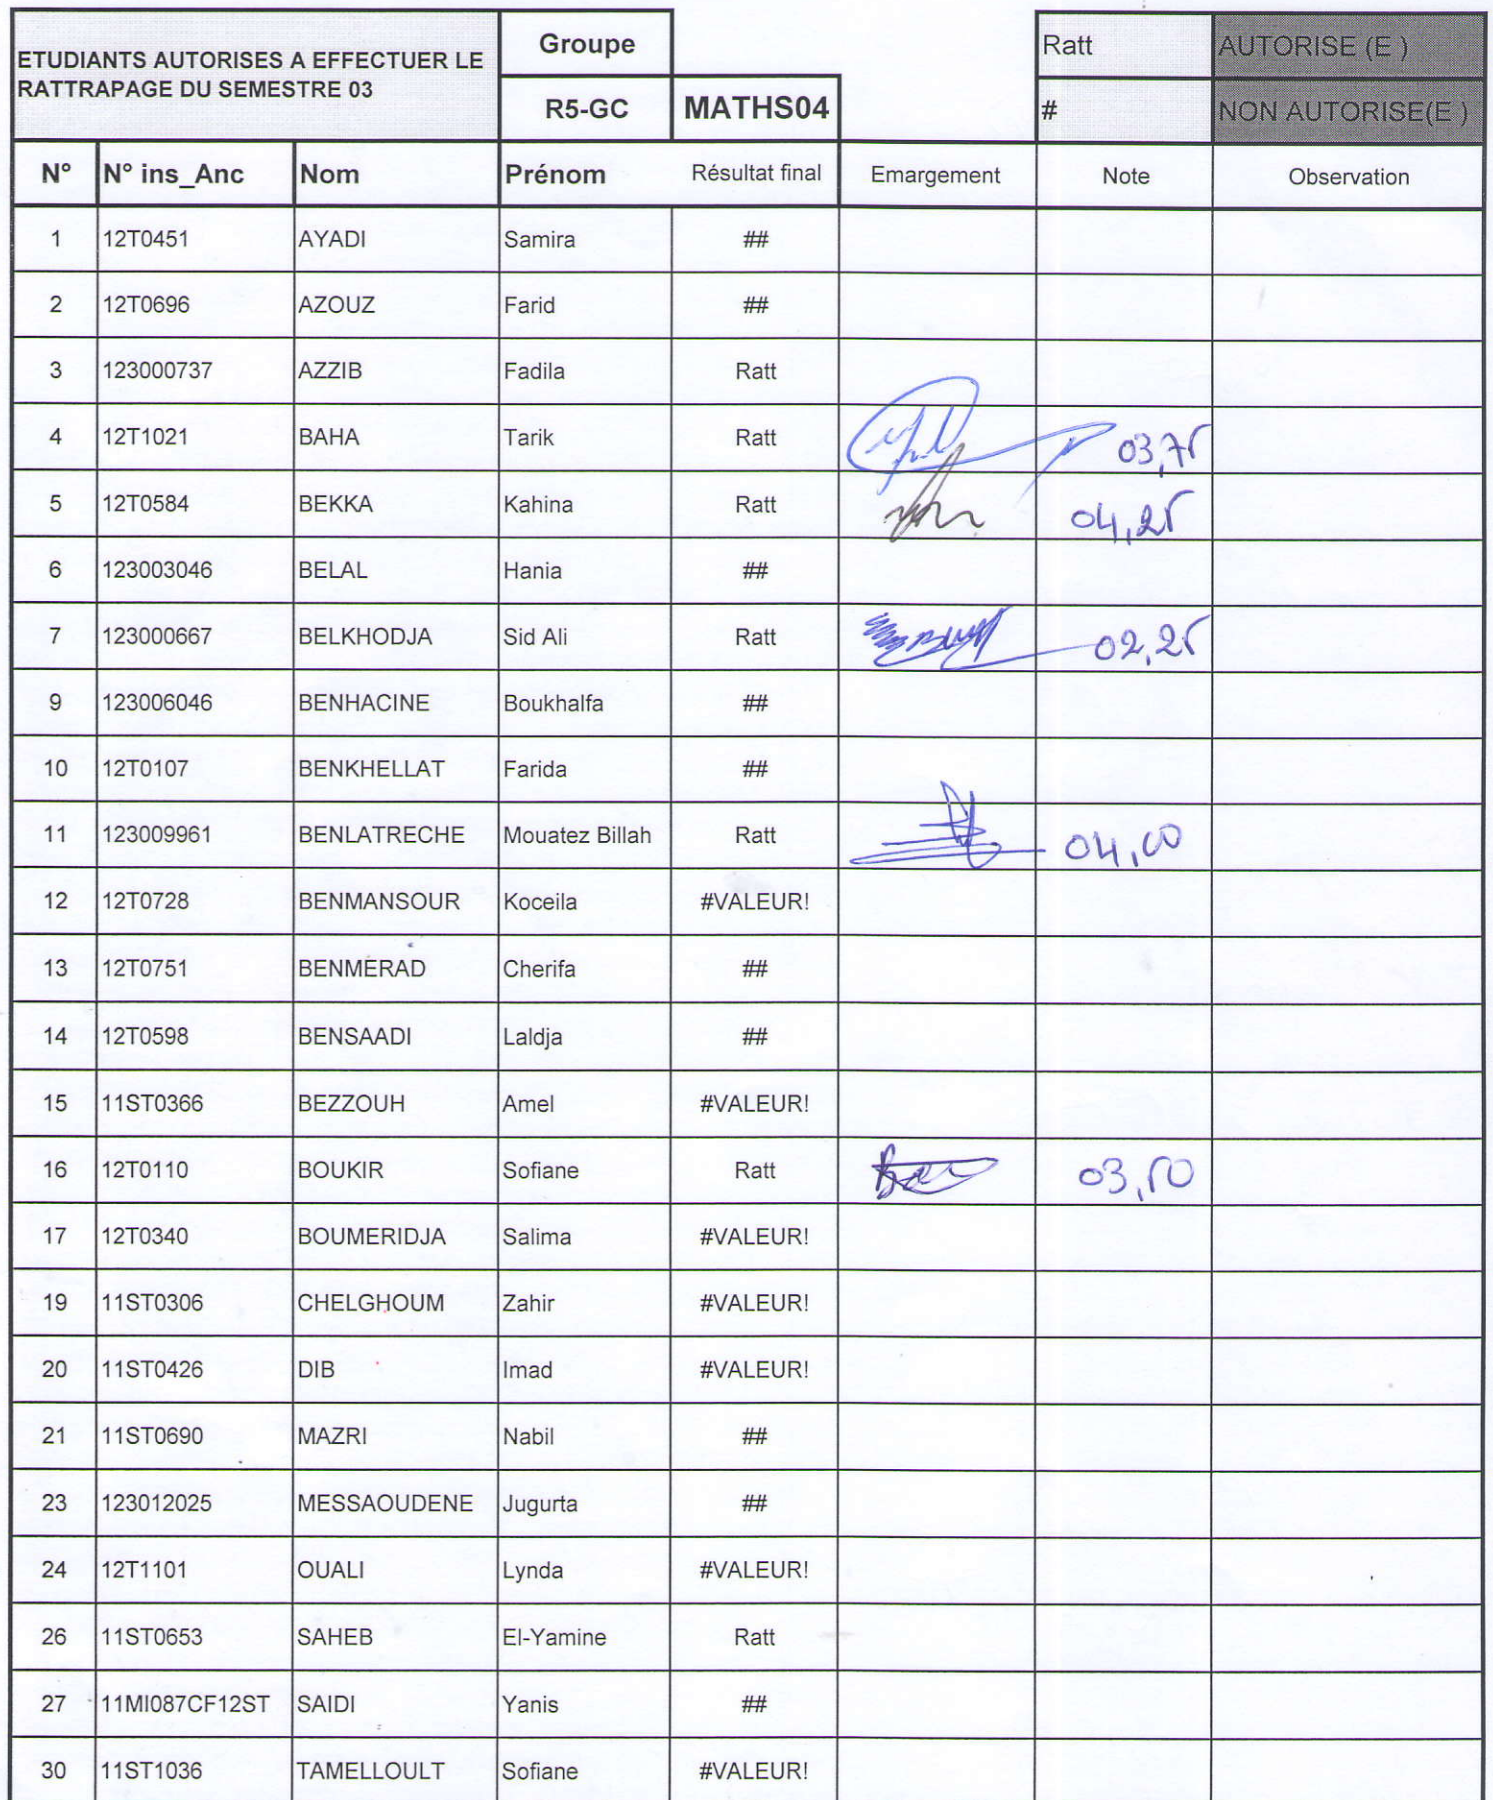 ETUDIANTS AUTORISES A EFFECTUER LE
RATTRAPAGE DU SEMESTRE 03
Groupe
R5-GC MATHS04
Ratt AUTORISE (E )
# NON AUTORISE(E )
N° N° ins_Anc Nom Prénom Résultat final Emargement Note Observation
1 12T0451 AYADI Samira ##
2 12T0696 AZOUZ Farid ##
3 123000737 AZZIB Fadila Ratt
4 12T1021 BAHA Tarik Ratt 03,75
5 12T0584 BEKKA Kahina Ratt 04,25
6 123003046 BELAL Hania ##
7 123000667 BELKHODJA Sid Ali Ratt 02,25
9 123006046 BENHACINE Boukhalfa ##
10 12T0107 BENKHELLAT Farida ##
11 123009961 BENLATRECHE Mouatez Billah Ratt 04,00
12 12T0728 BENMANSOUR Koceila #VALEUR!
13 12T0751 BENMERAD Cherifa ##
14 12T0598 BENSAADI Laldja ##
15 11ST0366 BEZZOUH Amel #VALEUR!
16 12T0110 BOUKIR Sofiane Ratt 03,50
17 12T0340 BOUMERIDJA Salima #VALEUR!
19 11ST0306 CHELGHOUM Zahir #VALEUR!
20 11ST0426 DIB Imad #VALEUR!
21 11ST0690 MAZRI Nabil ##
23 123012025 MESSAOUDENE Jugurta ##
24 12T1101 OUALI Lynda #VALEUR!
26 11ST0653 SAHEB El-Yamine Ratt
27 11MI087CF12ST SAIDI Yanis ##
30 11ST1036 TAMELLOULT Sofiane #VALEUR!